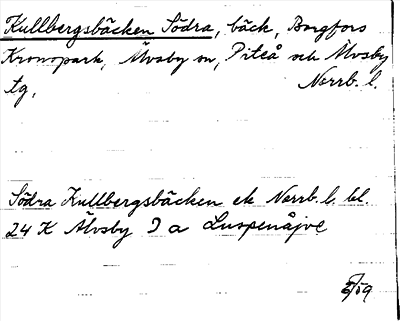 Kullbergsbäcken Södra, bäck, Borgfors
Kronopark, Älvsby sn, Piteå och Älvsby
tg, Norrb. l.
Södra Kullbergsbäcken ek Norrb. l. bl.
24 K Älvsby J a Luspenåjve
/59